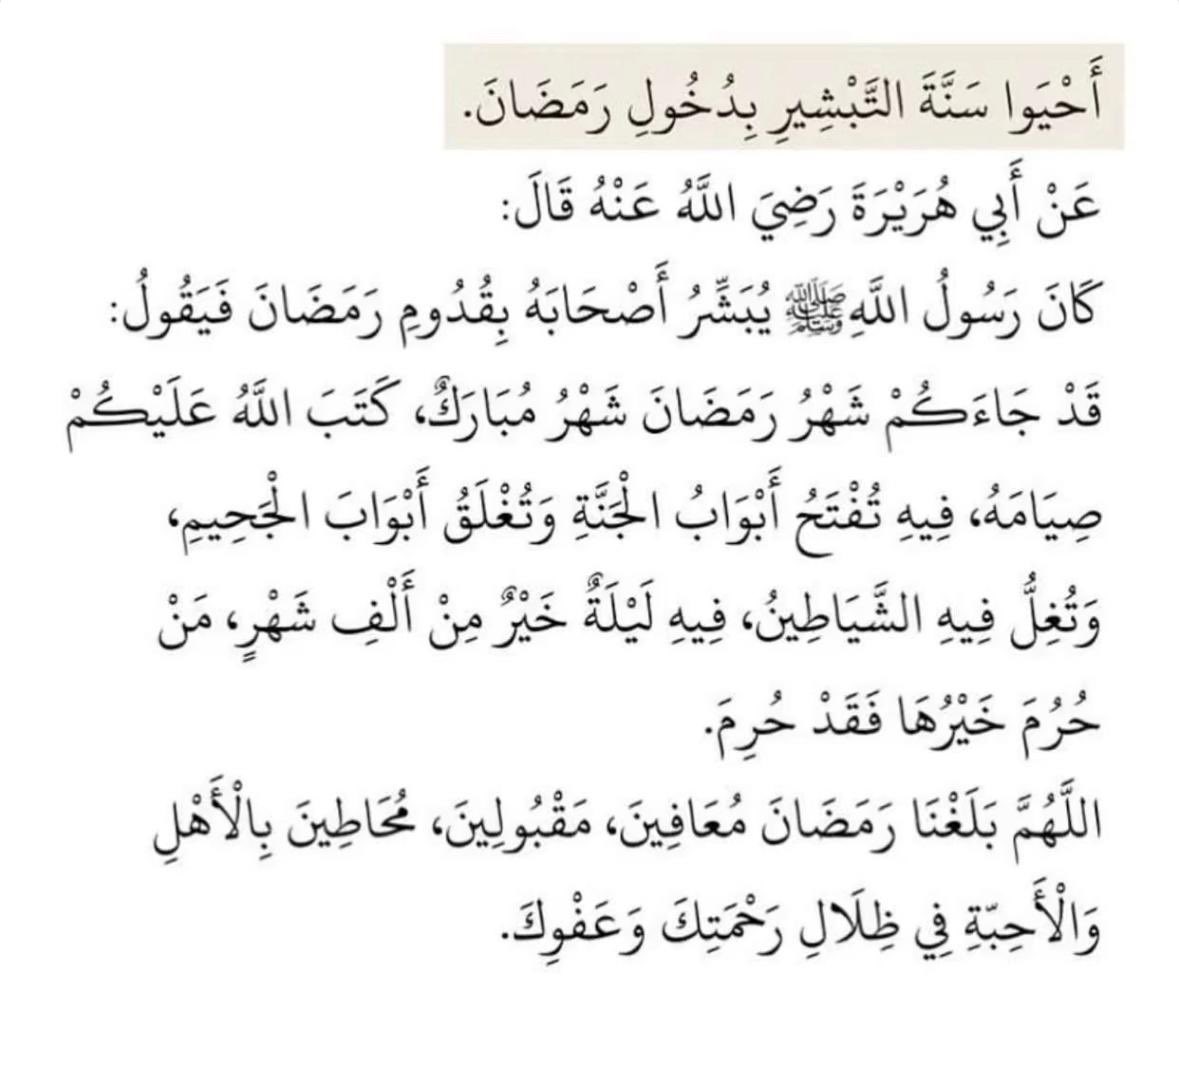 أَحْيَوا سَنَّةَ التَّبْشِيرِ بِدُخُولِ رَمَضَانَ.
عَنْ أَبِي هُرَيْرَةَ رَضِيَ اللَّهُ عَنْهُ قَالَ:
كَانَ رَسُولُ اللَّهِ ﷺ يُبَشِّرُ أَصْحَابَهُ بِقُدُومِ رَمَضَانَ فَيَقُولُ:
قَدْ جَاءَكُمْ شَهْرُ رَمَضَانَ شَهْرُ مُبَارَكٌ، كَتَبَ اللَّهُ عَلَيْكُمْ
صِيَامَهُ، فِيهِ تُفْتَحُ أَبْوَابُ الْجَنَّةِ وَتُغْلَقُ أَبْوَابَ الْجَحِيمِ،
وَتُغِلُّ فِيهِ الشَّيَاطِينُ، فِيهِ لَيْلَةٌ خَيْرٌ مِنْ أَلْفِ شَهْرٍ، مَنْ
حُرُمَ خَيْرُهَا فَقَدْ حُرِمَ.
اللَّهُمَّ بَلَغْنَا رَمَضَانَ مُعَافِينَ، مَقْبُولِينَ، مُحَاطِينَ بِالْأَهْلِ
وَالْأَحِبّةِ فِي ظِلَالِ رَحْمَتِكَ وَعَفْوِكَ.